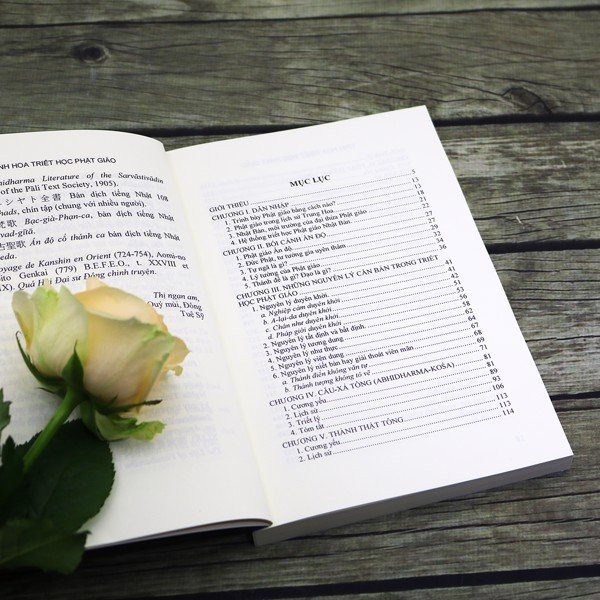 INH HOA TRIẾT HỌC PHẬT GIÁO
hidharma Literature of the Sarvāstivādin
of the Pāli Text Society, 1905).
ニシャト全書 Bản dịch tiếng Nhật 108
hads, chín tập (chung với nhiều người).
梵歌 Bạc-già-Phạn-ca, bản dịch tiếng Nhật
vad-gītā.
古聖歌 Ấn độ cổ thánh ca bản dịch tiếng Nhật
eda.
oyage de Kanshin en Orient (724-754), Aomi-no
ito Genkai (779) B.E.F.E.O., t. XXVIII et
IX). Quá Hải Đại sư Đông chinh truyện.
Thị ngạn am,
Quý mùi, Đông
Tuệ Sỹ
MỤC LỤC
GIỚI THIỆU 5
CHƯƠNG I. DẪN NHẬP 13
1. Trình bày Phật giáo bằng cách nào? 13
2. Phật giáo trong lịch sử Trung Hoa 18
3. Nhật Bản, môi trường của đại thừa Phật giáo 21
4. Hệ thống triết học Phật giáo Nhật Bản 22
CHƯƠNG II. BỐI CẢNH ẤN ĐỘ 27
1. Phật giáo Ấn độ 27
2. Đức Phật, tư tưởng gia uyên thâm 29
3. Tự ngã là gì? 33
4. Lý tưởng của Phật giáo 34
5. Thánh đế là gì? Đạo là gì? 37
CHƯƠNG III. NHỮNG NGUYÊN LÝ CĂN BẢN TRONG TRIẾT
HỌC PHẬT GIÁO 41
1. Nguyên lý duyên khởi 42
a. Nghiệp cảm duyên khởi
b. A-lại-da duyên khởi
c. Chân như duyên khởi
d. Pháp giới duyên khởi
2. Nguyên lý tất định và bất định 56
3. Nguyên lý tương dung 58
4. Nguyên lý như thực 62
5. Nguyên lý viên dung
6. Nguyên lý niết bàn hay giải thoát viên mãn 68
a. Thánh điển không văn tự 69
b. Thánh tượng không tô vẽ 71
CHƯƠNG IV. CÂU-XÁ TÔNG (ABHIDHARMA-KOŚA) 81
1. Cương yếu 81
2. Lịch sử
3. Triết lý 93
4. Tóm tắt 106
CHƯƠNG V. THÀNH THẬT TÔNG 113
1. Cương yếu 113
2. Lịch sử 114